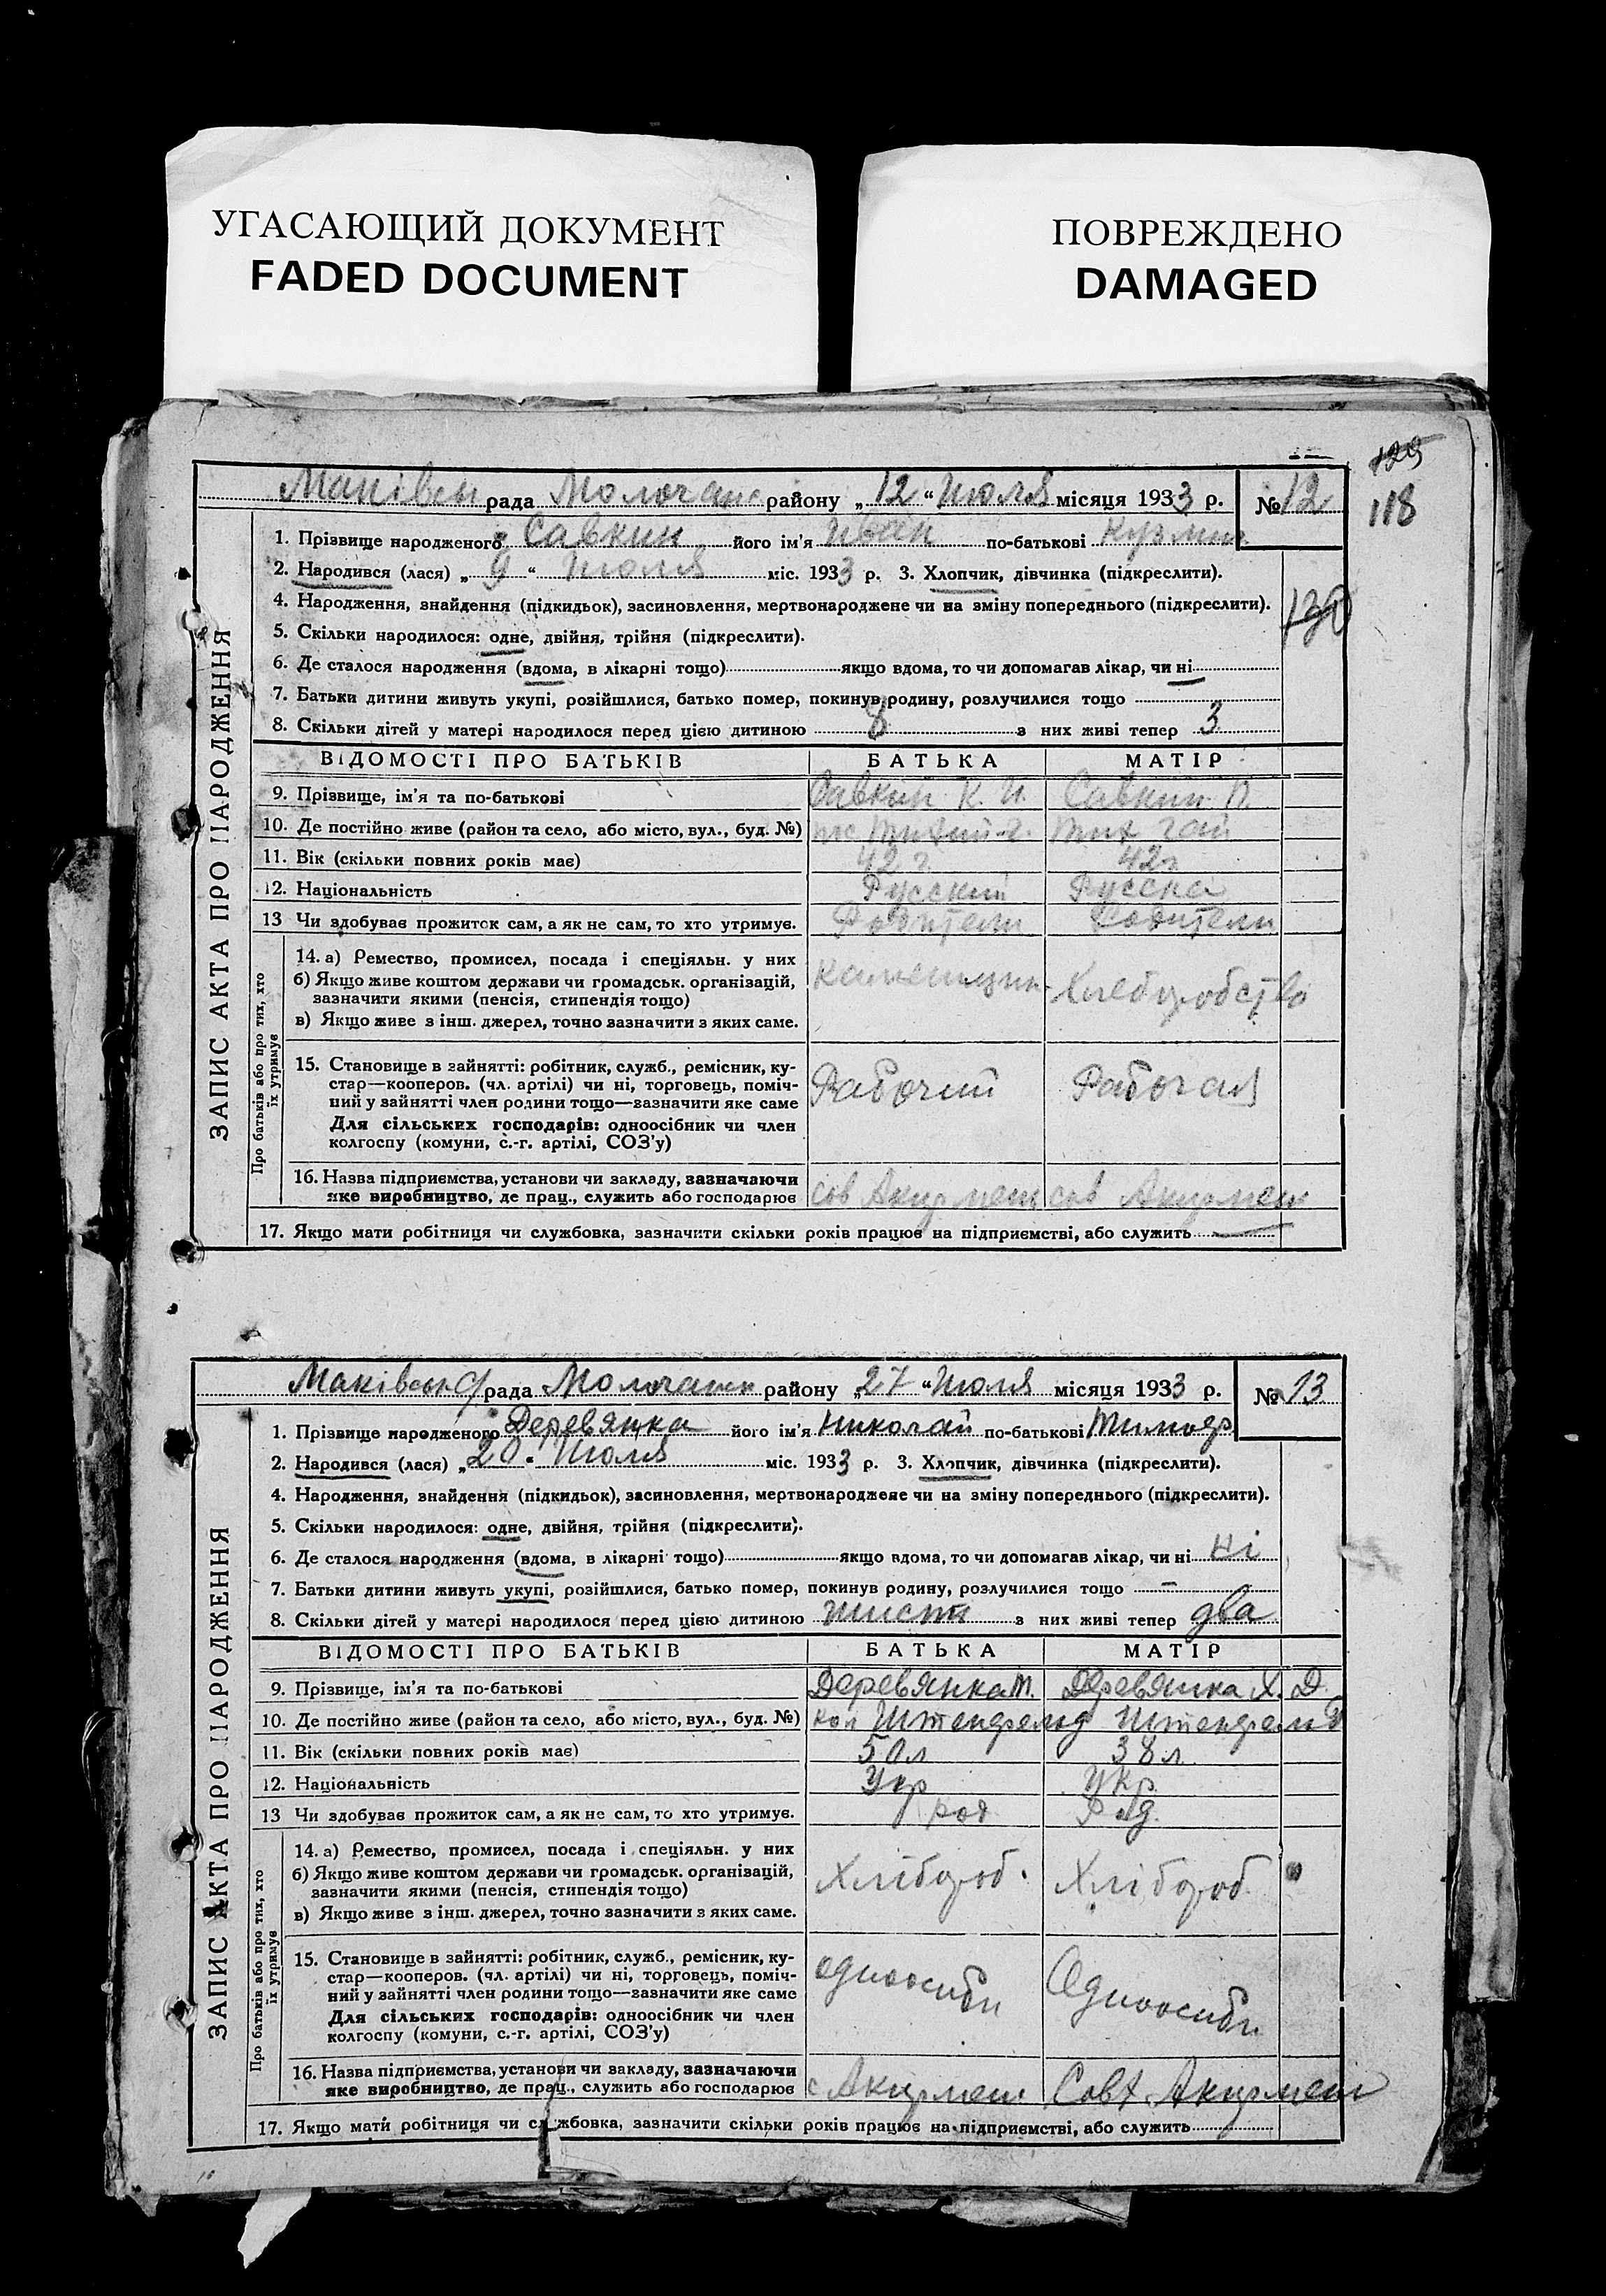 УГАСАЮЩИЙ ДОКУМЕНТ
FADED DOCUMENT
ПОВРЕЖДЕНО
DAMAGED
129
118
Маківськ рада Молочанс району „12“ Июля місяця 1933 р. № 12
1. Прізвище народженого Савкин його ім'я Иван по-батькові Кузмич
2. Народився (лася) „9“ Июля міс. 1933 р. 3. Хлопчик, дівчинка (підкреслити).
4. Народження, знайдення (підкидьок), засиновлення, мертвонароджене чи на зміну попереднього (підкреслити).
130
5. Скільки народилося: одне, двійня, трійня (підкреслити).
6. Де сталося народження (вдома, в лікарні тощо) якщо вдома, то чи допомагав лікар, чи ні
7. Батьки дитини живуть укупі, розійшлися, батько помер, покинув родину, розлучилися тощо
8. Скільки дітей у матері народилося перед цією дитиною 8 з них живі тепер 3
ВІДОМОСТІ ПРО БАТЬКІВ БАТЬКА МАТІР
9. Прізвище, ім'я та по-батькові Савкин К. И. Савкин П.
10. Де постійно живе (район та село, або місто, вул., буд. №) Тихий-г. Тих гай
11. Вік (скільки повних років має) 42 г. 42г
12. Національність Русский Русска
13 Чи здобуває прожиток сам, а як не сам, то хто утримує. Родители Родители
ЗАПИС АКТА ПРО НАРОДЖЕННЯ
Про батьків або про тих, хто їх утримує
14. а) Ремество, промисел, посада і спеціяльн. у них
б) Якщо живе коштом держави чи громадськ. організацій,
зазначити якими (пенсія, стипендія тощо) Каменщик Хлеборобство
в) Якщо живе з інш. джерел, точно зазначити з яких саме.
15. Становище в зайнятті: робітник, служб., ремісник, ку-
стар—кооперов. (чл. артілі) чи ні, торговець, поміч-
ний у зайнятті член родини тощо—зазначити яке саме Рабочий Рабочая
Для сільських господарів: одноосібник чи член
колгоспу (комуни, с.-г. артілі, СОЗ'у)
16. Назва підприємства, установи чи закладу, зазначаючи
яке виробництво, де прац., служить або господарює сов Акирмен сов Акирмен
17. Якщо мати робітниця чи службовка, зазначити скільки років працює на підприємстві, або служить
Маківськ рада Молочанск району „27“ Июля місяця 1933 р. № 13
1. Прізвище народженого Деревянка його ім'я Николай по-батькові Тимофр
2. Народився (лася) „20“ Июля міс. 1933 р. 3. Хлопчик, дівчинка (підкреслити).
4. Народження, знайдення (підкидьок), засиновлення, мертвонароджене чи на зміну попереднього (підкреслити).
5. Скільки народилося: одне, двійня, трійня (підкреслити).
6. Де сталося народження (вдома, в лікарні тощо) якщо вдома, то чи допомагав лікар, чи ні ні
7. Батьки дитини живуть укупі, розійшлися, батько помер, покинув родину, розлучилися тощо —
8. Скільки дітей у матері народилося перед цією дитиною шисть з них живі тепер два
ВІДОМОСТІ ПРО БАТЬКІВ БАТЬКА МАТІР
9. Прізвище, ім'я та по-батькові Деревянка Т. Деревянка Х. Д.
10. Де постійно живе (район та село, або місто, вул., буд. №) кол Штенфельд Штенфельд
11. Вік (скільки повних років має) 50л 38л.
12. Національність Укр Укр
13 Чи здобуває прожиток сам, а як не сам, то хто утримує. род Род.
ЗАПИС АКТА ПРО НАРОДЖЕННЯ
Про батьків або про тих, хто їх утримує
14. а) Ремество, промисел, посада і спеціяльн. у них
б) Якщо живе коштом держави чи громадськ. організацій,
зазначити якими (пенсія, стипендія тощо) Хлібороб. Хлібороб.
в) Якщо живе з інш. джерел, точно зазначити з яких саме.
15. Становище в зайнятті: робітник, служб., ремісник, ку-
стар—кооперов. (чл. артілі) чи ні, торговець, поміч-
ний у зайнятті член родини тощо—зазначити яке саме одноосиби Одноосиби
Для сільських господарів: одноосібник чи член
колгоспу (комуни, с.-г. артілі, СОЗ'у)
16. Назва підприємства, установи чи закладу, зазначаючи
яке виробництво, де прац., служить або господарює с Акирмен Совх. Акирмен
17. Якщо мати робітниця чи службовка, зазначити скільки років працює на підприємстві, або служить